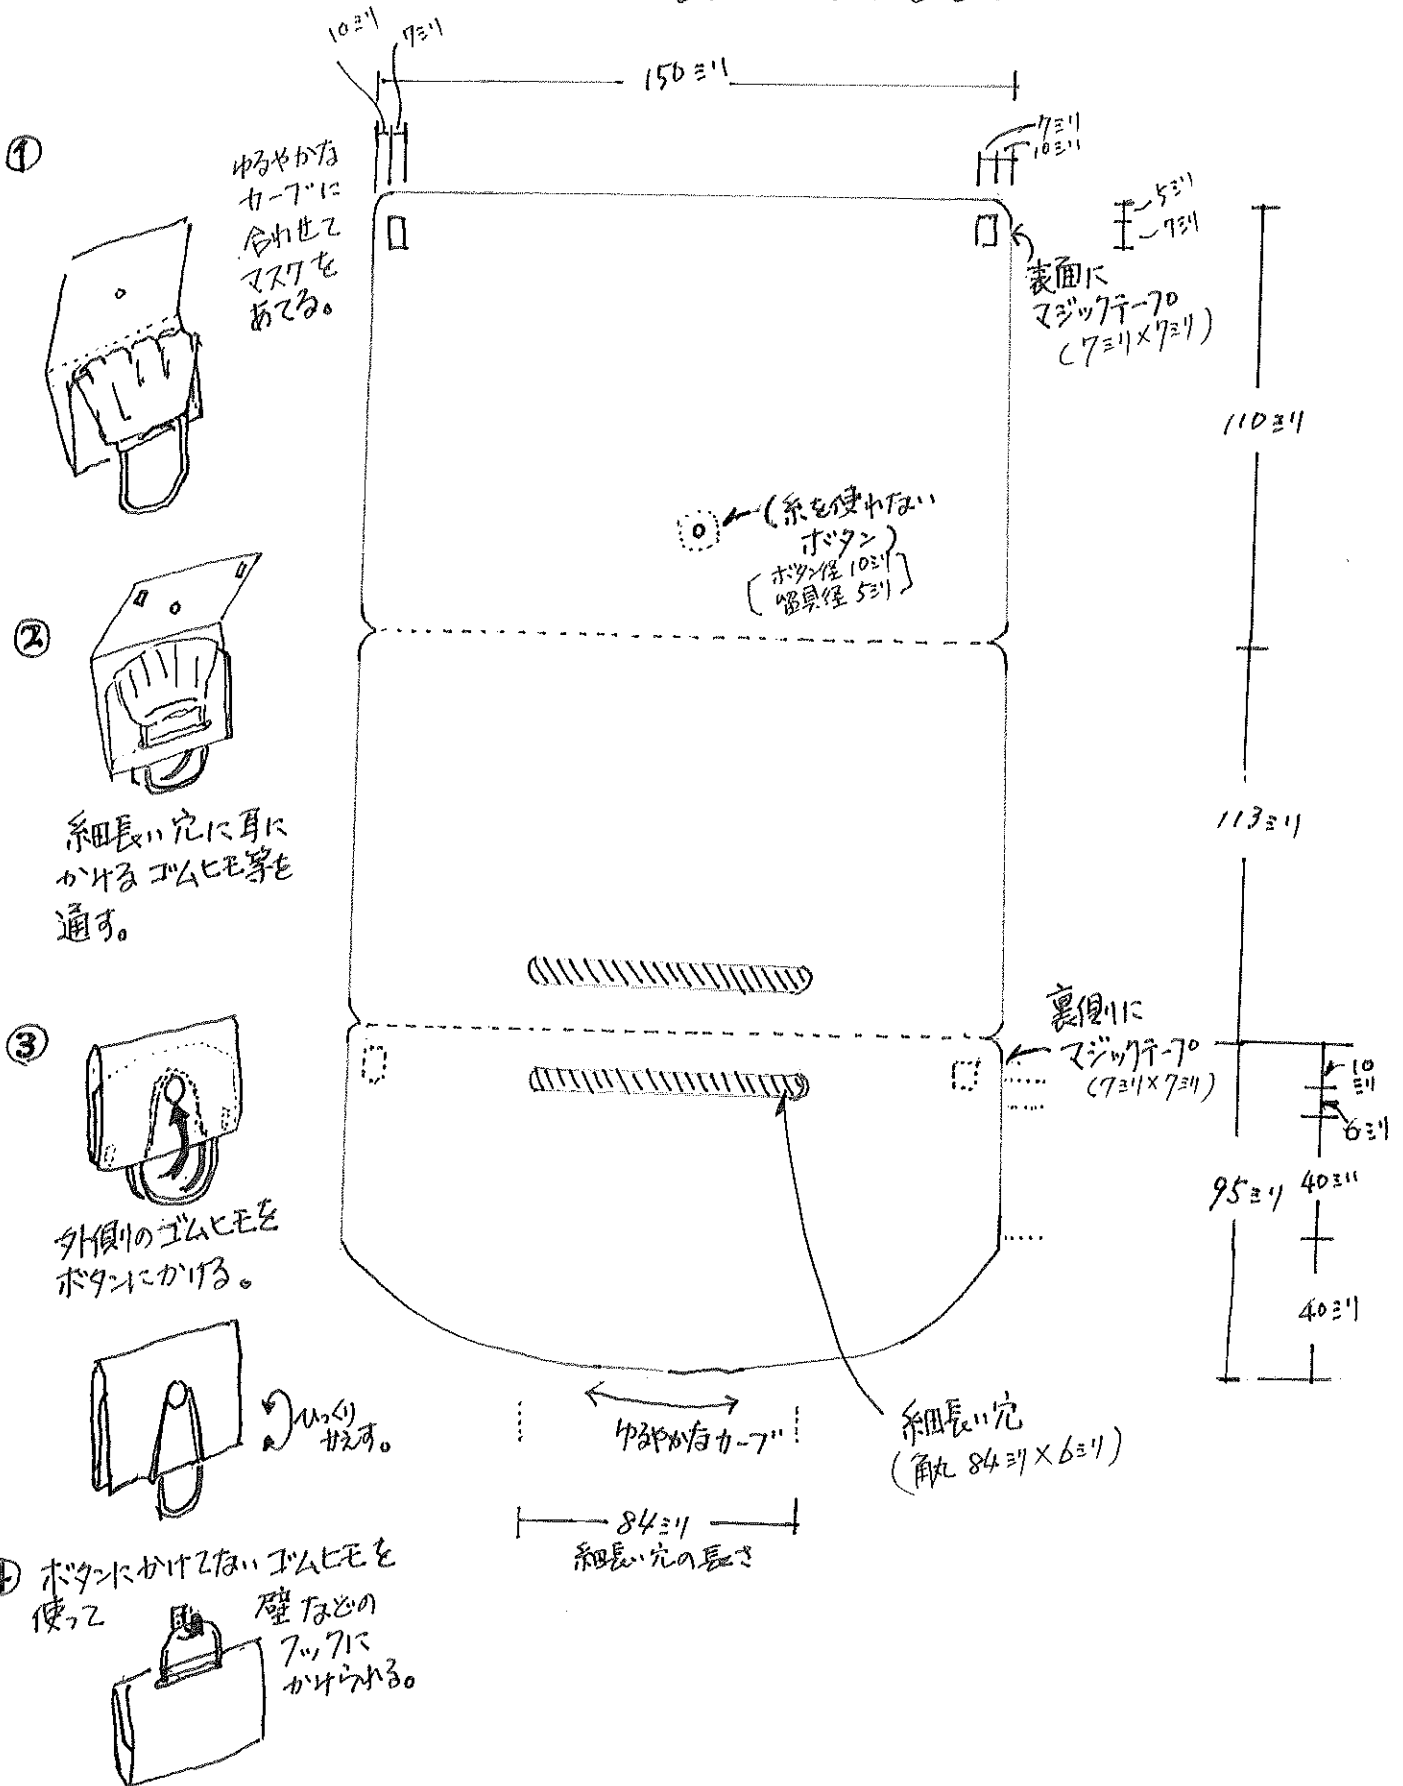 10ミリ
7ミリ
150ミリ
①
ゆるやかな
カーブに
合わせて
マスクを
あてる。
7ミリ
10ミリ
5ミリ
7ミリ
表面に
マジックテープ
(7ミリ×7ミリ)
110ミリ
(糸を使わない
ボタン)
[ボタン径 10ミリ
留具径 5ミリ]
②
細長い穴に耳に
かけるゴムヒモ等を
通す。
113ミリ
③
外側のゴムヒモを
ボタンにかける。
裏側に
マジックテープ
(7ミリ×7ミリ)
10
ミリ
6ミリ
95ミリ
40ミリ
40ミリ
ひっくり
かえす。
ゆるやかなカーブ
細長い穴
(角丸 84ミリ×6ミリ)
84ミリ
細長い穴の長さ
ボタンにかけてないゴムヒモを
使って
壁などの
フックに
かけられる。